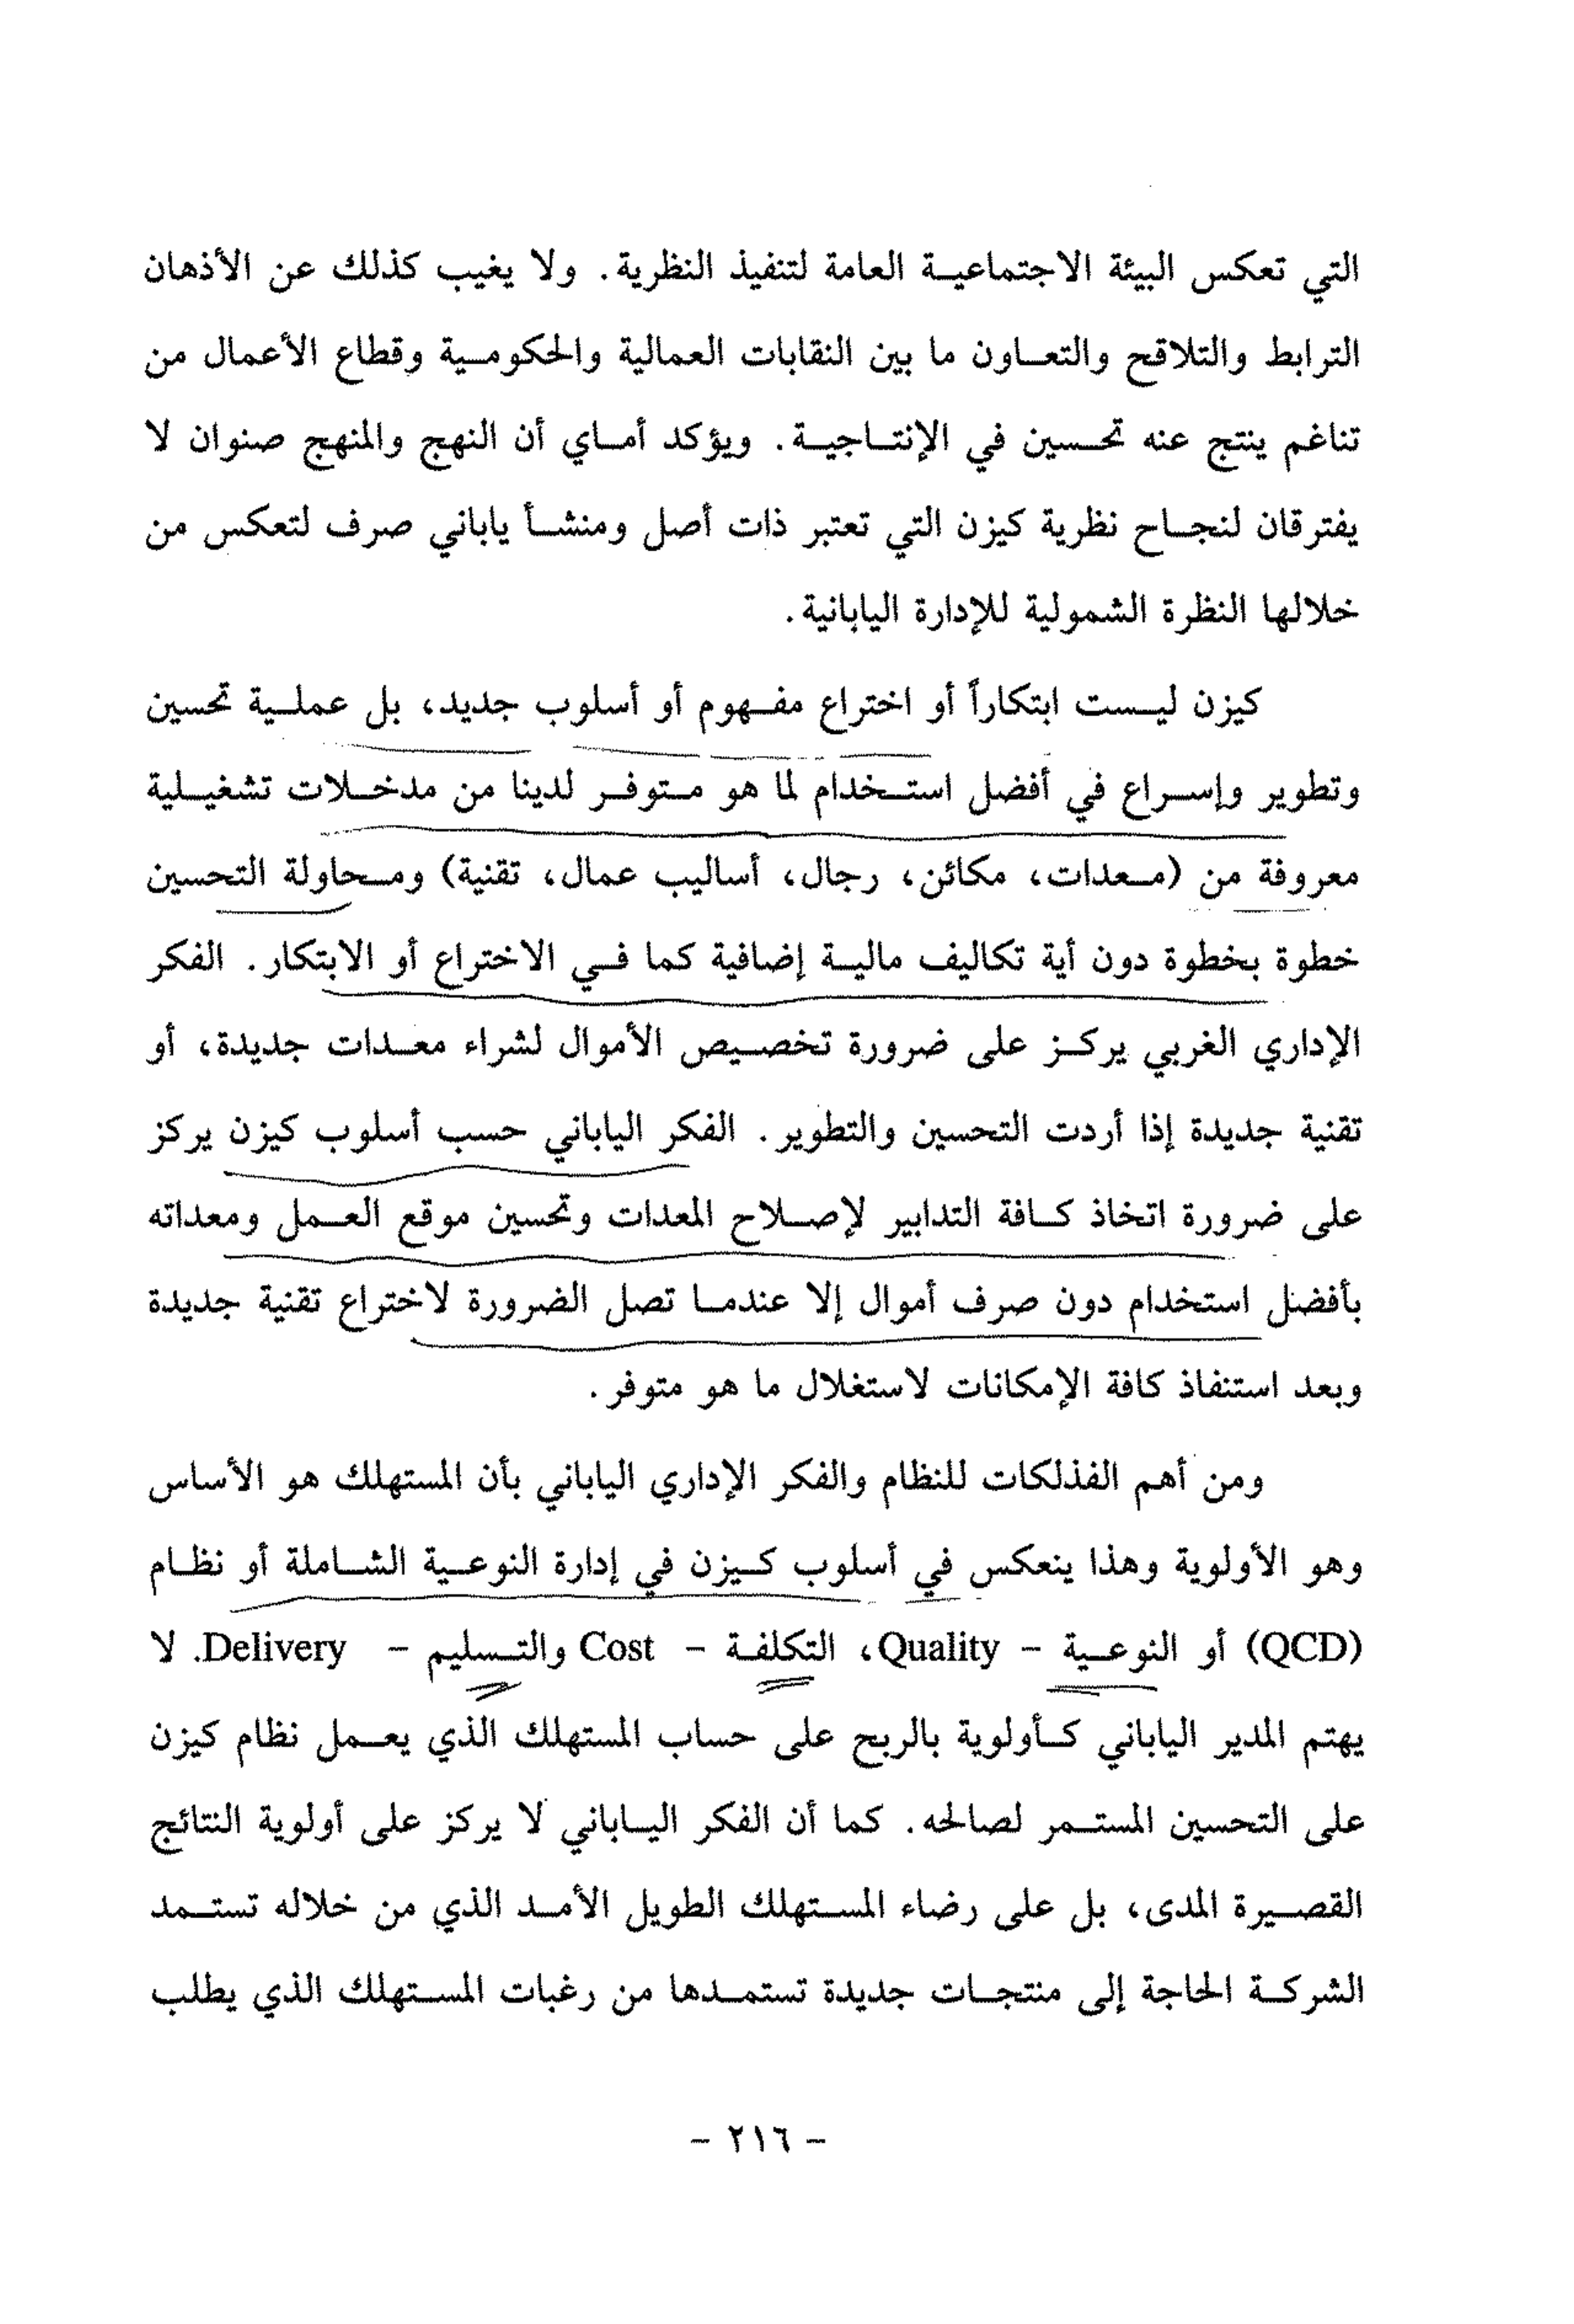 التي تعكس البيئة الاجتماعية العامة لتنفيذ النظرية. ولا يغيب كذلك عن الأذهان
الترابط والتلاقح والتعاون ما بين النقابات العمالية والحكومية وقطاع الأعمال من
تناغم ينتج عنه تحسين في الإنتاجية. ويؤكد أماي أن النهج والمنهج صنوان لا
يفترقان لنجاح نظرية كيزن التي تعتبر ذات أصل ومنشأ ياباني صرف لتعكس من
خلالها النظرة الشمولية للإدارة اليابانية.
كيزن ليست ابتكاراً أو اختراع مفهوم أو أسلوب جديد، بل عملية تحسين
وتطوير وإسراع في أفضل استخدام لما هو متوفر لدينا من مدخلات تشغيلية
معروفة من (معدات، مكائن، رجال، أساليب عمال، تقنية) ومحاولة التحسين
خطوة بخطوة دون أية تكاليف مالية إضافية كما في الاختراع أو الابتكار. الفكر
الإداري الغربي يركز على ضرورة تخصيص الأموال لشراء معدات جديدة، أو
تقنية جديدة إذا أردت التحسين والتطوير. الفكر الياباني حسب أسلوب كيزن يركز
على ضرورة اتخاذ كافة التدابير لإصلاح المعدات وتحسين موقع العمل ومعداته
بأفضل استخدام دون صرف أموال إلا عندما تصل الضرورة لاختراع تقنية جديدة
وبعد استنفاذ كافة الإمكانات لاستغلال ما هو متوفر.
ومن أهم الفذلكات للنظام والفكر الإداري الياباني بأن المستهلك هو الأساس
وهو الأولوية وهذا ينعكس في أسلوب كيزن في إدارة النوعية الشاملة أو نظام
(QCD) أو النوعية – Quality، التكلفة – Cost والتسليم – Delivery. لا
يهتم المدير الياباني كأولوية بالربح على حساب المستهلك الذي يعمل نظام كيزن
على التحسين المستمر لصالحه. كما أن الفكر الياباني لا يركز على أولوية النتائج
القصيرة المدى، بل على رضاء المستهلك الطويل الأمد الذي من خلاله تستمد
الشركة الحاجة إلى منتجات جديدة تستمدها من رغبات المستهلك الذي يطلب
– ٢١٦ –